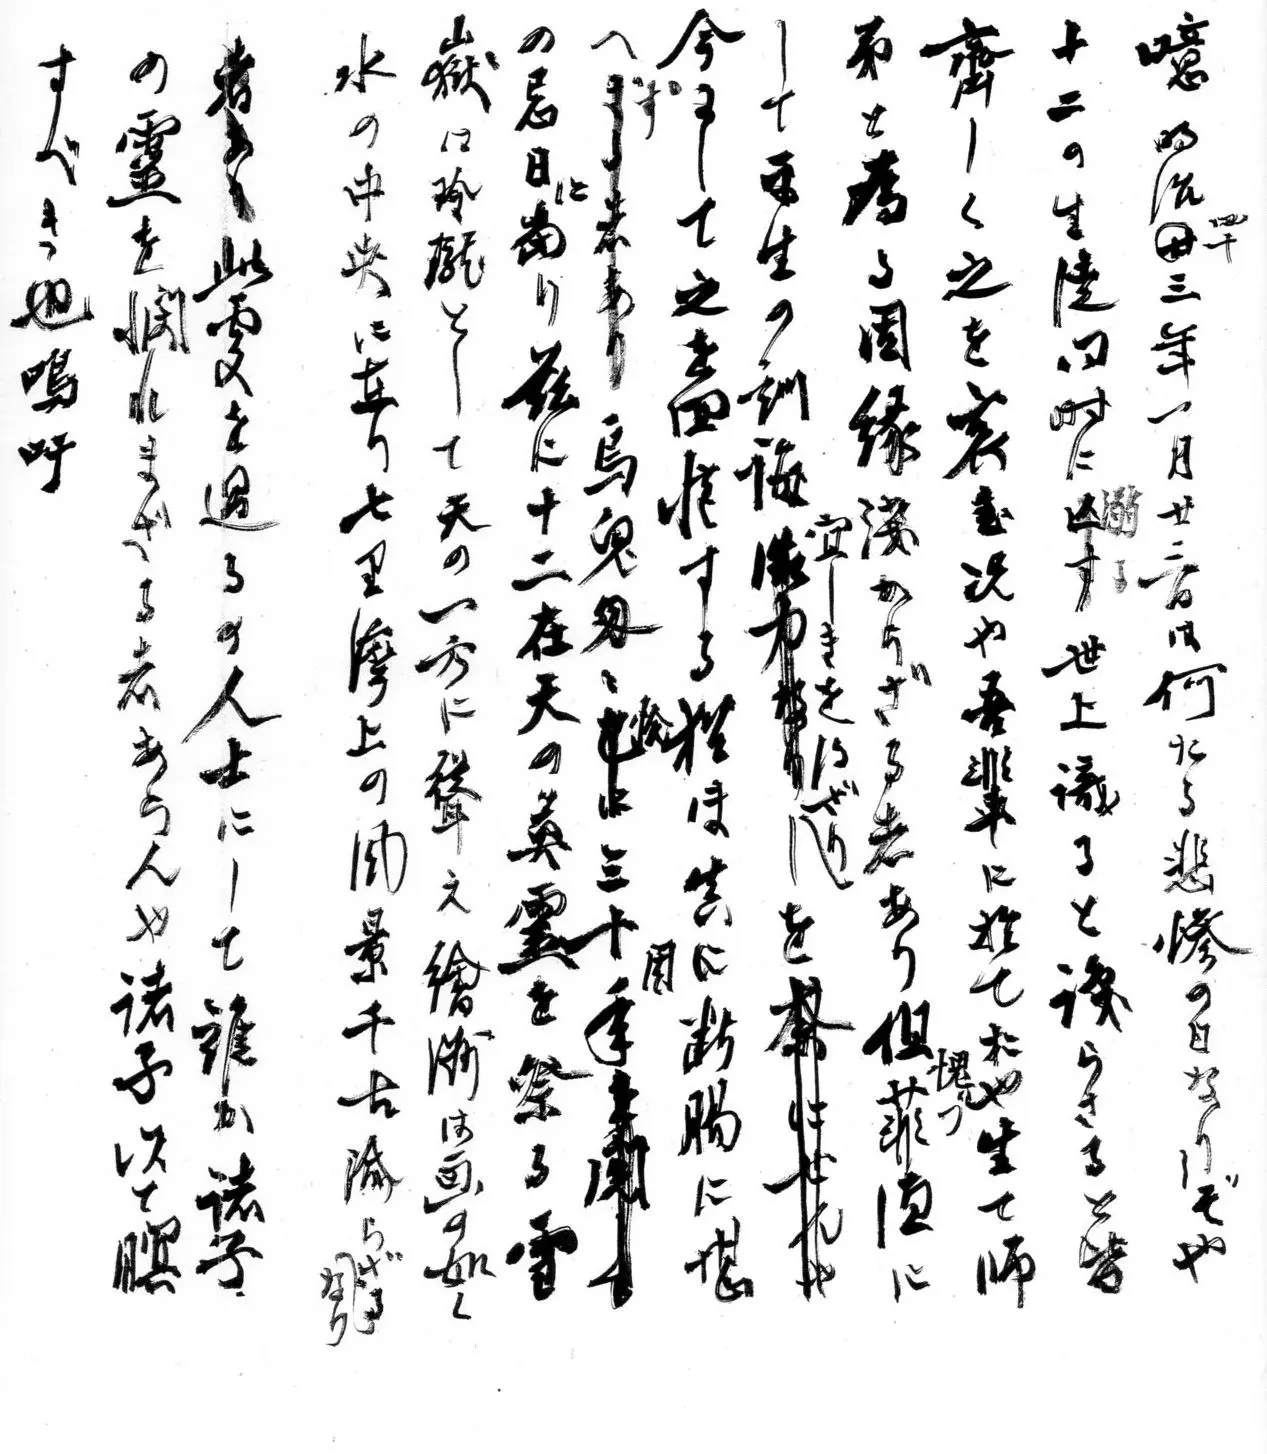 噫明治四十三年一月廿三日は何たる悲惨の日なりしぞや
十二の生陸同時に溺る世上識ると識らざると皆
齊しく之を哀む況や吾輩に於ておや生て師
弟と為る因縁淺からざる者あり但菲徳に愧づ
して平生の訓誨宜しきを得ざりしを
今にして之を回憶する猶ほ真に断腸に堪
へず烏兎匆々光陰三十年周
の忌日に當り茲に十二在天の英靈を祭る雪
嶽は玲瓏として天の一方に聳え繪嶋は画の如く
水の中央に在り七里濱上の風景千古渝らざるなり
者あり此処を過るの人士にして誰か諸子
の靈を憫れまざる者あらんや諸子以て瞑
すべき也嗚呼